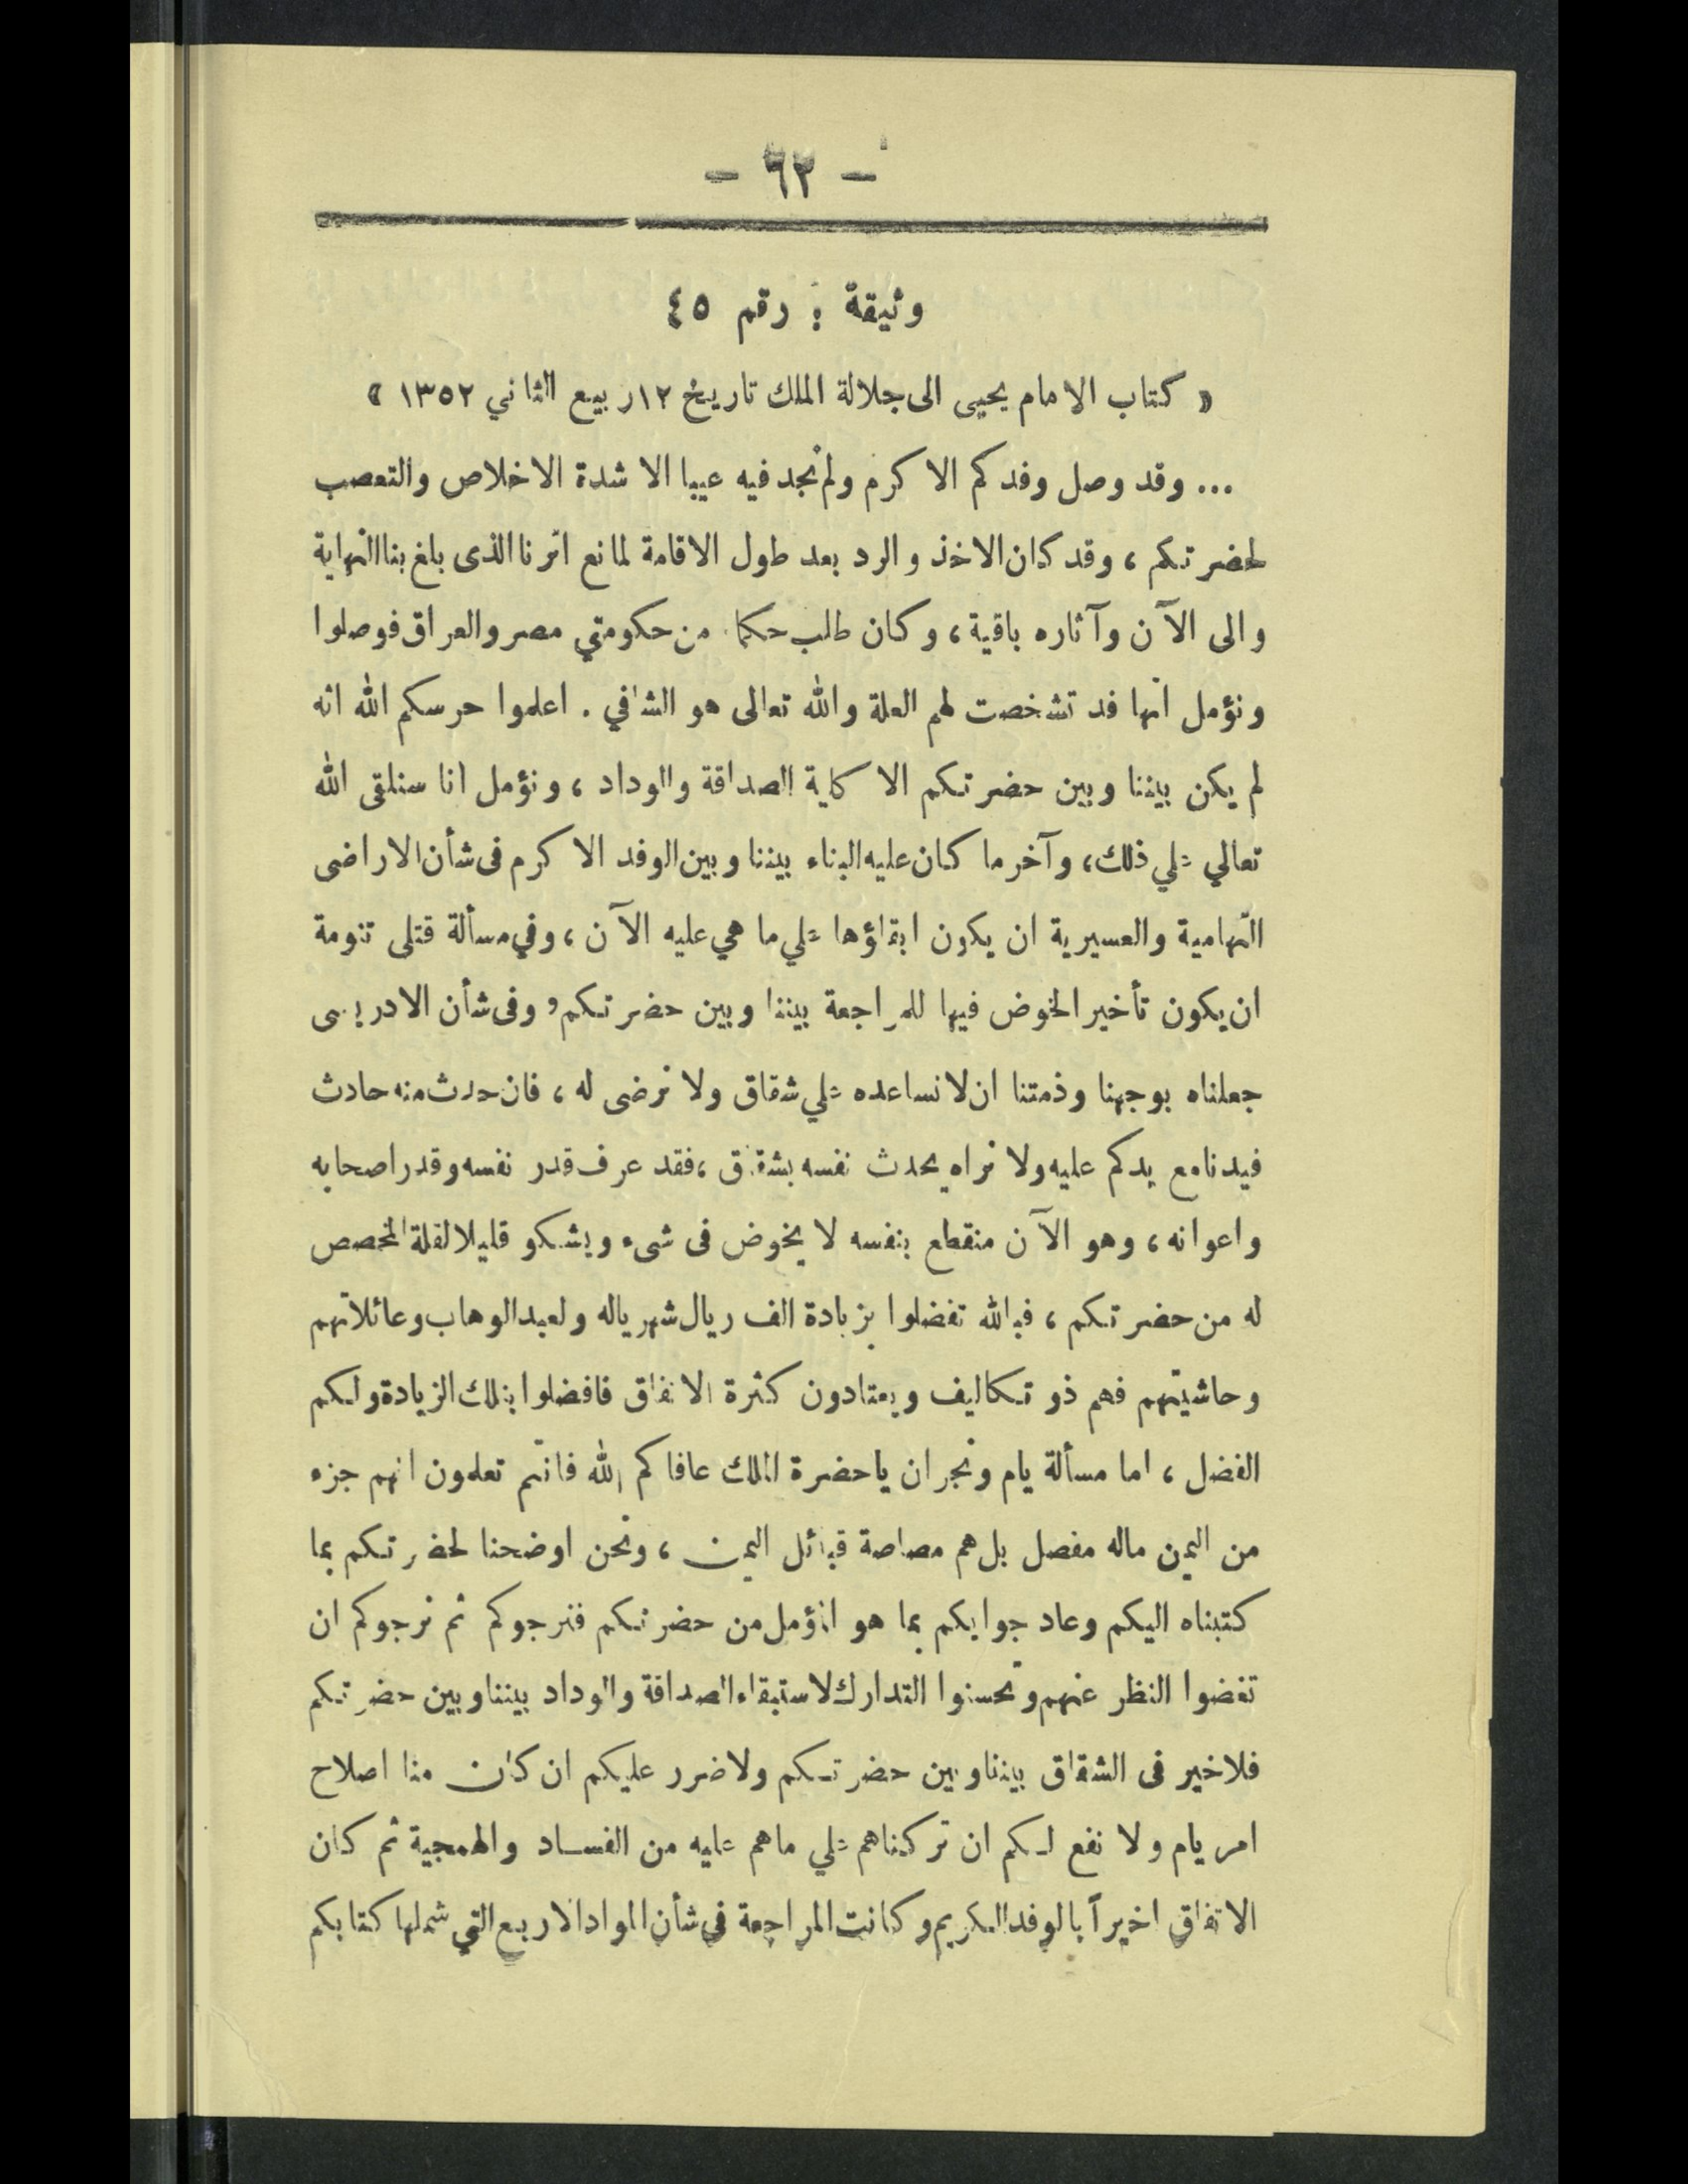 - ٦٣ -
وثيقة : رقم ٤٥
« كتاب الامام يحيى الى جلالة الملك تاريخ ١٢ ربيع الثاني ١٣٥٢ »
... وقد وصل وفدكم الاكرم ولم نجد فيه عيبا الا شدة الاخلاص والتعصب
لحضرتكم ، وقد كان الاخذ والرد بعد طول الاقامة لمانع اثرنا الذى بلغ بنا النهاية
والى الآن وآثاره باقية ، وكان طلب حكما من حكومتي مصر والعراق فوصلوا
ونؤمل انها قد تشخصت لهم العلة والله تعالى هو الشافي . اعلموا حرسكم الله انه
لم يكن بيننا وبين حضرتكم الا كلية الصداقة والوداد ، ونؤمل انا سنلقى الله
تعالي علي ذلك ، وآخر ما كان عليه البناء بيننا وبين الوفد الاكرم فى شأن الاراضى
التهامية والعسيرية ان يكون ابقاؤها علي ما هي عليه الآن ، وفي مسألة قتلى تنومة
ان يكون تأخير الخوض فيها للمراجعة بيننا وبين حضرتكم ، وفى شأن الادريسى
جعلناه بوجهنا وذمتنا ان لا نساعده علي شقاق ولا نرضى له ، فان حدث منه حادث
فيدنا مع يدكم عليه ولا نراه يحدث نفسه بشقاق ، فقد عرف قدر نفسه وقدر اصحابه
واعوانه ، وهو الآن منقطع بنفسه لا يخوض فى شىء ويشكو قليلا لقلة المخصص
له من حضرتكم ، فبالله تفضلوا بزيادة الف ريال شهريا له ولعبد الوهاب وعائلاتهم
وحاشيتهم فهم ذو تكاليف ويعتادون كثرة الانفاق فافضلوا بتلك الزيادة ولكم
الفضل ، اما مسألة يام ونجران يا حضرة الملك عافاكم الله فانتم تعلمون انهم جزء
من اليمن ماله مفصل بل هم مصاصة قبائل اليمن ، ونحن اوضحنا لحضرتكم بما
كتبناه اليكم وعاد جوابكم بما هو المؤمل من حضرتكم فنرجوكم ثم نرجوكم ان
تغضوا النظر عنهم وتحسنوا التدارك لاستبقاء الصداقة والوداد بيننا وبين حضرتكم
فلا خير فى الشقاق بيننا وبين حضرتكم ولا ضرر عليكم ان كان منا اصلاح
امر يام ولا نفع لكم ان تركناهم علي ماهم عليه من الفساد والهمجية ثم كان
الاتفاق اخيراً بالوفد الكريم وكانت المراجعة في شأن المواد الاربع التي شملها كتابكم